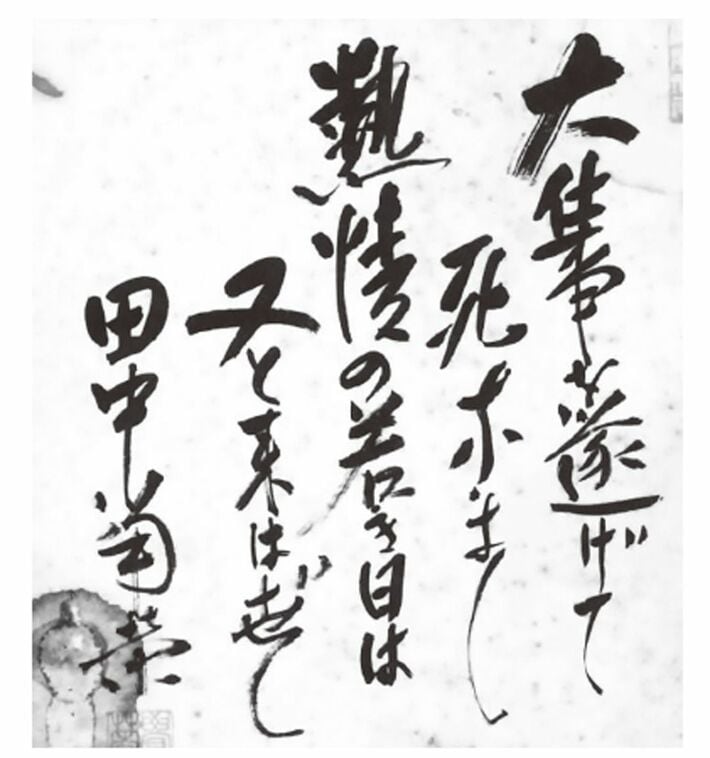 大事を遂げて
死なまし
熱情の若き日は
又と来はせじ
田中菊栄